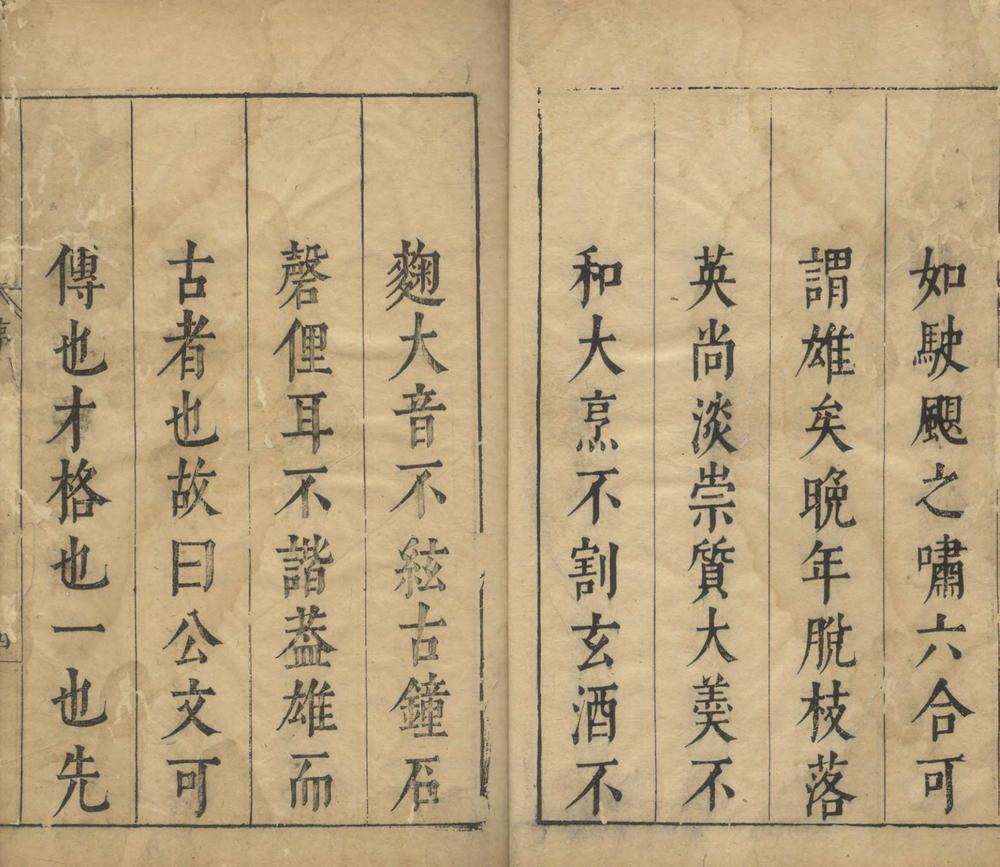 如駛颶之嘯六合可
謂雄矣晚年脫枝落
英尚淡崇質大羮不
和大烹不割玄酒不
麴大音不絃古鐘石
磬俚耳不諧葢雄而
古者也故曰公文可
傳也才格也一也先
序
四